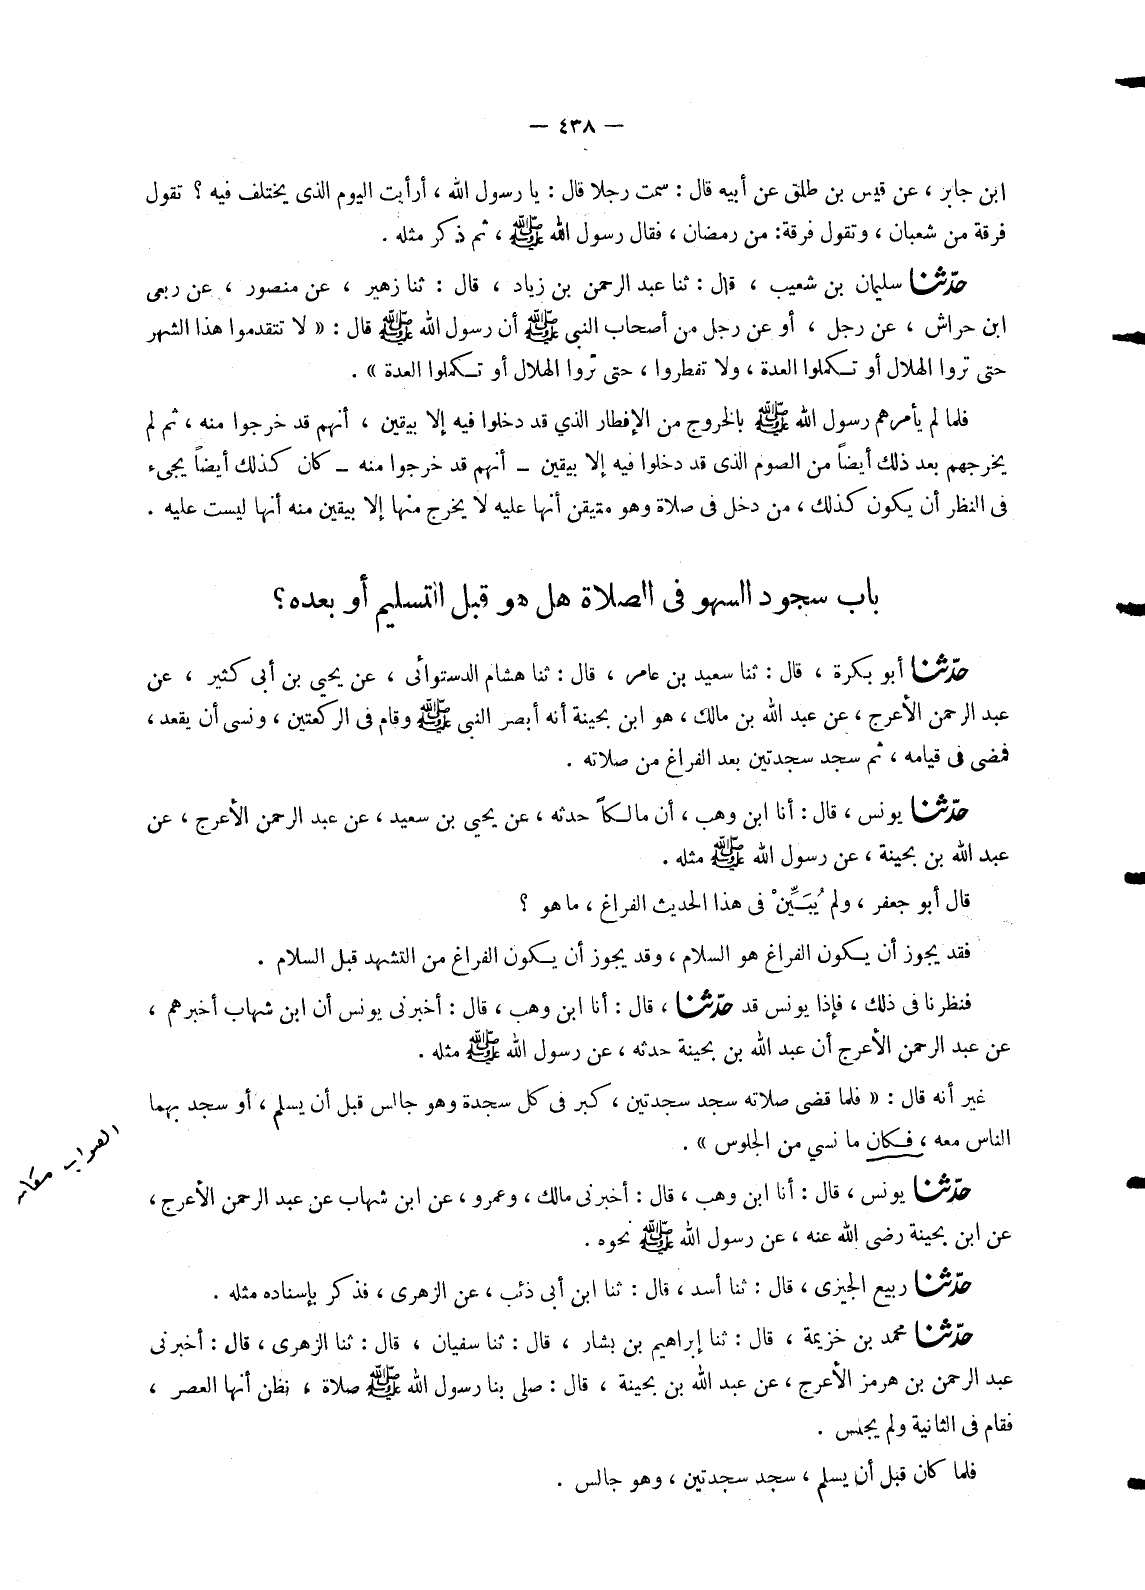 — ٤٣٨ —
ابن جابر ، عن قيس بن طلق عن أبيه قال : سمت رجلا قال : يا رسول الله ، أرأيت اليوم الذى يختلف فيه ؟ تقول
فرقة من شعبان ، وتقول فرقة: من رمضان ، فقال رسول الله ﷺ ، ثم ذكر مثله .
حدّثنا سليمان بن شعيب ، قال : ثنا عبد الرحمن بن زياد ، قال : ثنا زهير ، عن منصور ، عن ربعى
ابن حراش ، عن رجل ، أو عن رجل من أصحاب النبي ﷺ أن رسول الله ﷺ قال : « لا تتقدموا هذا الشهر
حتى تروا الهلال أو تكملوا العدة ، ولا تفطروا ، حتى تروا الهلال أو تكملوا العدة » .
فلما لم يأمرهم رسول الله ﷺ بالخروج من الإفطار الذي قد دخلوا فيه إلا بيقين ، أنهم قد خرجوا منه ، ثم لم
يخرجهم بعد ذلك أيضاً من الصوم الذى قد دخلوا فيه إلا بيقين – أنهم قد خرجوا منه – كان كذلك أيضاً يجىء
فى النظر أن يكون كذلك ، من دخل فى صلاة وهو متيقن أنها عليه لا يخرج منها إلا بيقين منه أنها ليست عليه .
باب سجود السهو فى الصلاة هل هو قبل التسليم أو بعده؟
حدّثنا أبو بكرة ، قال : ثنا سعيد بن عامر ، قال : ثنا هشام الدستوائى ، عن يحيى بن أبى كثير ، عن
عبد الرحمن الأعرج ، عن عبد الله بن مالك ، هو ابن بحينة أنه أبصر النبي ﷺ وقام فى الركعتين ، ونسى أن يقعد ،
فمضى فى قيامه ، ثم سجد سجدتين بعد الفراغ من صلاته .
حدّثنا يونس ، قال : أنا ابن وهب ، أن مالكاً حدثه ، عن يحيى بن سعيد ، عن عبد الرحمن الأعرج ، عن
عبد الله بن بحينة ، عن رسول الله ﷺ مثله .
قال أبو جعفر ، ولم يُبَيِّنْ فى هذا الحديث الفراغ ، ما هو ؟
فقد يجوز أن يكون الفراغ هو السلام ، وقد يجوز أن يكون الفراغ من التشهد قبل السلام .
فنظرنا فى ذلك ، فإذا يونس قد حدّثنا ، قال : أنا ابن وهب ، قال : أخبرنى يونس أن ابن شهاب أخبرهم ،
عن عبد الرحمن الأعرج أن عبد الله بن بحينة حدثه ، عن رسول الله ﷺ مثله .
غير أنه قال : « فلما قضى صلاته سجد سجدتين ، كبر فى كل سجدة وهو جالس قبل أن يسلم ، أو سجد بهما
الناس معه ، فكان ما نسي من الجلوس » .
الصواب مكان
حدّثنا يونس ، قال : أنا ابن وهب ، قال : أخبرنى مالك ، وعمرو ، عن ابن شهاب عن عبد الرحمن الأعرج ،
عن ابن بحينة رضى الله عنه ، عن رسول الله ﷺ نحوه .
حدّثنا ربيع الجيزى ، قال : ثنا أسد ، قال : ثنا ابن أبى ذئب ، عن الزهرى ، فذكر بإسناده مثله .
حدّثنا محمد بن خزيمة ، قال : ثنا إبراهيم بن بشار ، قال : ثنا سفيان ، قال : ثنا الزهرى ، قال : أخبرنى
عبد الرحمن بن هرمز الأعرج ، عن عبد الله بن بحينة ، قال : صلى بنا رسول الله ﷺ صلاة ، نظن أنها العصر ،
فقام فى الثانية ولم يجلس .
فلما كان قبل أن يسلم ، سجد سجدتين ، وهو جالس .